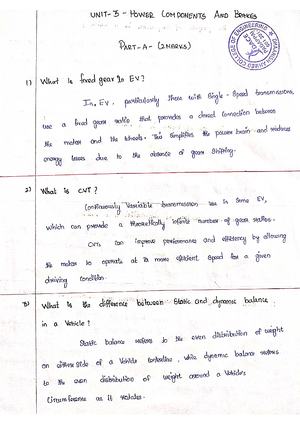 UNIT-3 - POWER COMPONENTS AND BRAKES
PART-A- (2MARKS)
1) What is fixed gear in EV?
In, EV, particularly those with Single-Speed transmissions,
use a fixed gear ratio that provides a direct connection between
the motor and the wheels. This simplifies the power train and reduces
energy losses due to the absence of gear shifting.
2) What is CVT?
Continuously Variable transmission use in Some EV,
which can provide a theoretically infinite number of gear ratios.
CVTs can improve performance and efficiency by allowing
the motor to operate at its more efficient Speed for a given
driving condition.
3) What is the difference between Static and dynamic balance
in a Vehicle?
Static balance refers to the even distribution of weight
on either side of a Vehicle centerline, while dynamic balance refers
to the even distribution of weight around a Vehicle's
Circumference as it rotates.